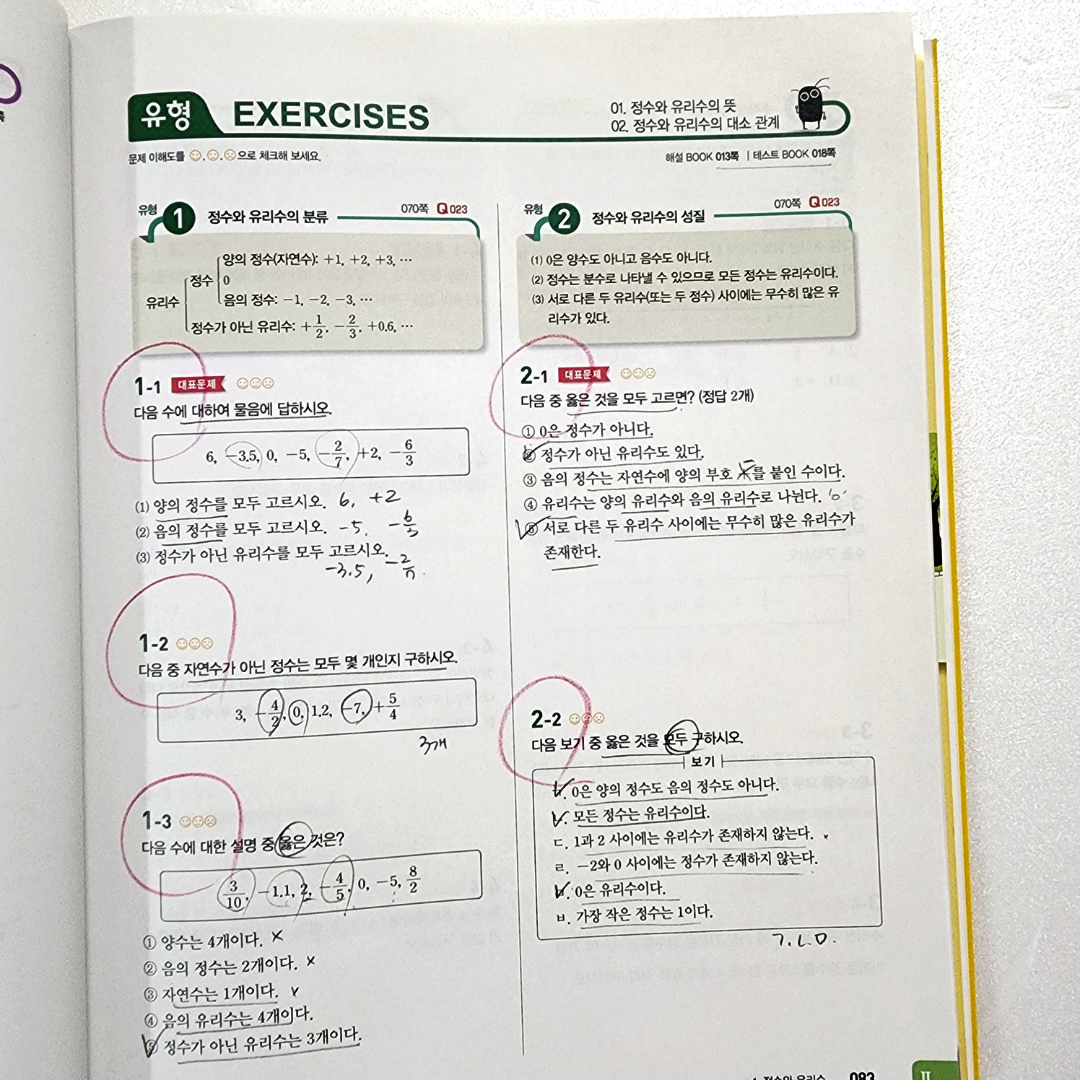 유형 EXERCISES
01. 정수와 유리수의 뜻
02. 정수와 유리수의 대소 관계
문제 이해도를 ☺.☺.☹으로 체크해 보세요.
해설 BOOK 013쪽 | 테스트 BOOK 018쪽
유형 1 정수와 유리수의 분류 070쪽 Q 023
유리수 정수 양의 정수(자연수): +1, +2, +3, ⋯
0
음의 정수: −1, −2, −3, ⋯
정수가 아닌 유리수: +1/2, −2/3, +0.6, ⋯
1-1 대표문제
다음 수에 대하여 물음에 답하시오.
6, −3.5, 0, −5, −2/7, +2, −6/3
(1) 양의 정수를 모두 고르시오. 6, +2
(2) 음의 정수를 모두 고르시오. -5, -6/3
(3) 정수가 아닌 유리수를 모두 고르시오.
-3.5, -2/7
1-2
다음 중 자연수가 아닌 정수는 모두 몇 개인지 구하시오.
3, −4/2, 0, 1.2, −7, +5/4
3개
1-3
다음 수에 대한 설명 중 옳은 것은?
3/10, −1.1, 2, −4/5, 0, −5, 8/2
① 양수는 4개이다. ×
② 음의 정수는 2개이다. ×
③ 자연수는 1개이다.
④ 음의 유리수는 4개이다.
⑤ 정수가 아닌 유리수는 3개이다.
유형 2 정수와 유리수의 성질 070쪽 Q 023
(1) 0은 양수도 아니고 음수도 아니다.
(2) 정수는 분수로 나타낼 수 있으므로 모든 정수는 유리수이다.
(3) 서로 다른 두 유리수(또는 두 정수) 사이에는 무수히 많은 유
리수가 있다.
2-1 대표문제
다음 중 옳은 것을 모두 고르면? (정답 2개)
① 0은 정수가 아니다.
② 정수가 아닌 유리수도 있다.
③ 음의 정수는 자연수에 양의 부호 를 붙인 수이다.
④ 유리수는 양의 유리수와 음의 유리수로 나뉜다. '0'
⑤ 서로 다른 두 유리수 사이에는 무수히 많은 유리수가
존재한다.
2-2
다음 보기 중 옳은 것을 모두 구하시오.
보기
ㄱ. 0은 양의 정수도 음의 정수도 아니다.
ㄴ. 모든 정수는 유리수이다.
ㄷ. 1과 2 사이에는 유리수가 존재하지 않는다.
ㄹ. −2와 0 사이에는 정수가 존재하지 않는다.
ㅁ. 0은 유리수이다.
ㅂ. 가장 작은 정수는 1이다.
ㄱ. ㄴ. ㅁ.
정수와 유리수 083
II